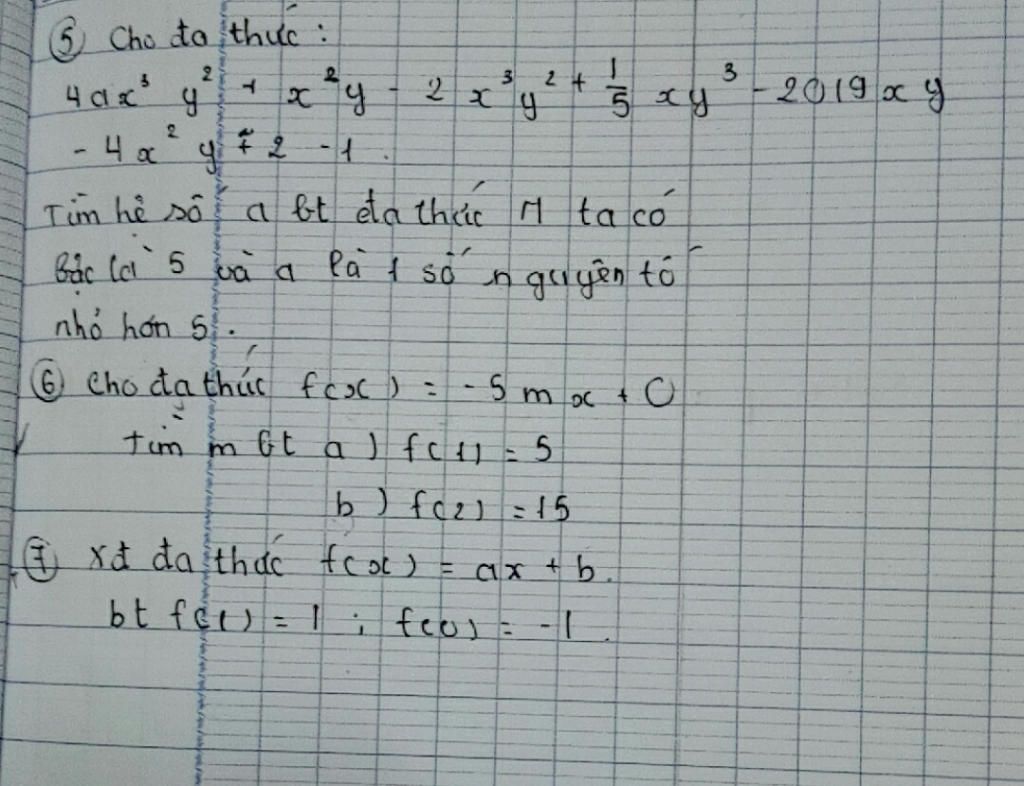 ⑤ Cho đa thức :
4ax³ y² + x²y - 2 x³y² + 1/5 xy³ - 2019 xy
- 4x² y + 2 - 1 .
Tìm hệ số a bt đa thức M ta có
Bậc là 5 và a là 1 số nguyên tố
nhỏ hơn 5 .
⑥ Cho đa thức f(x) = -5 m x + 0
Tìm m bt a ) f(1) = 5
b ) f(2) = 15
⑦ xđ đa thức f(x) = ax + b.
bt f(1) = 1 ; f(0) = -1 .